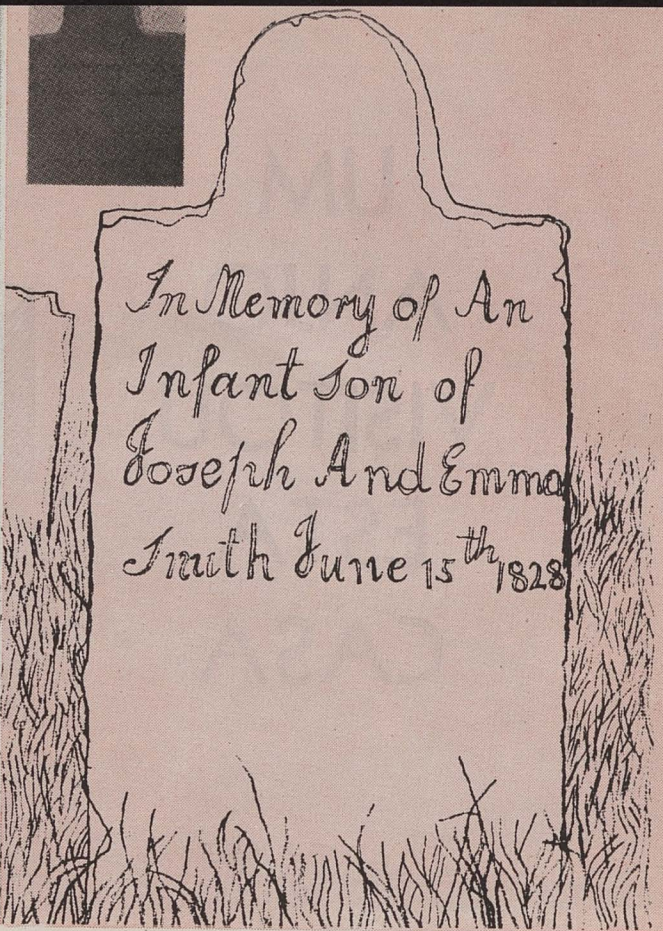 In Memory of An
Infant son of
Joseph And Emma
Smith June 15th 1828